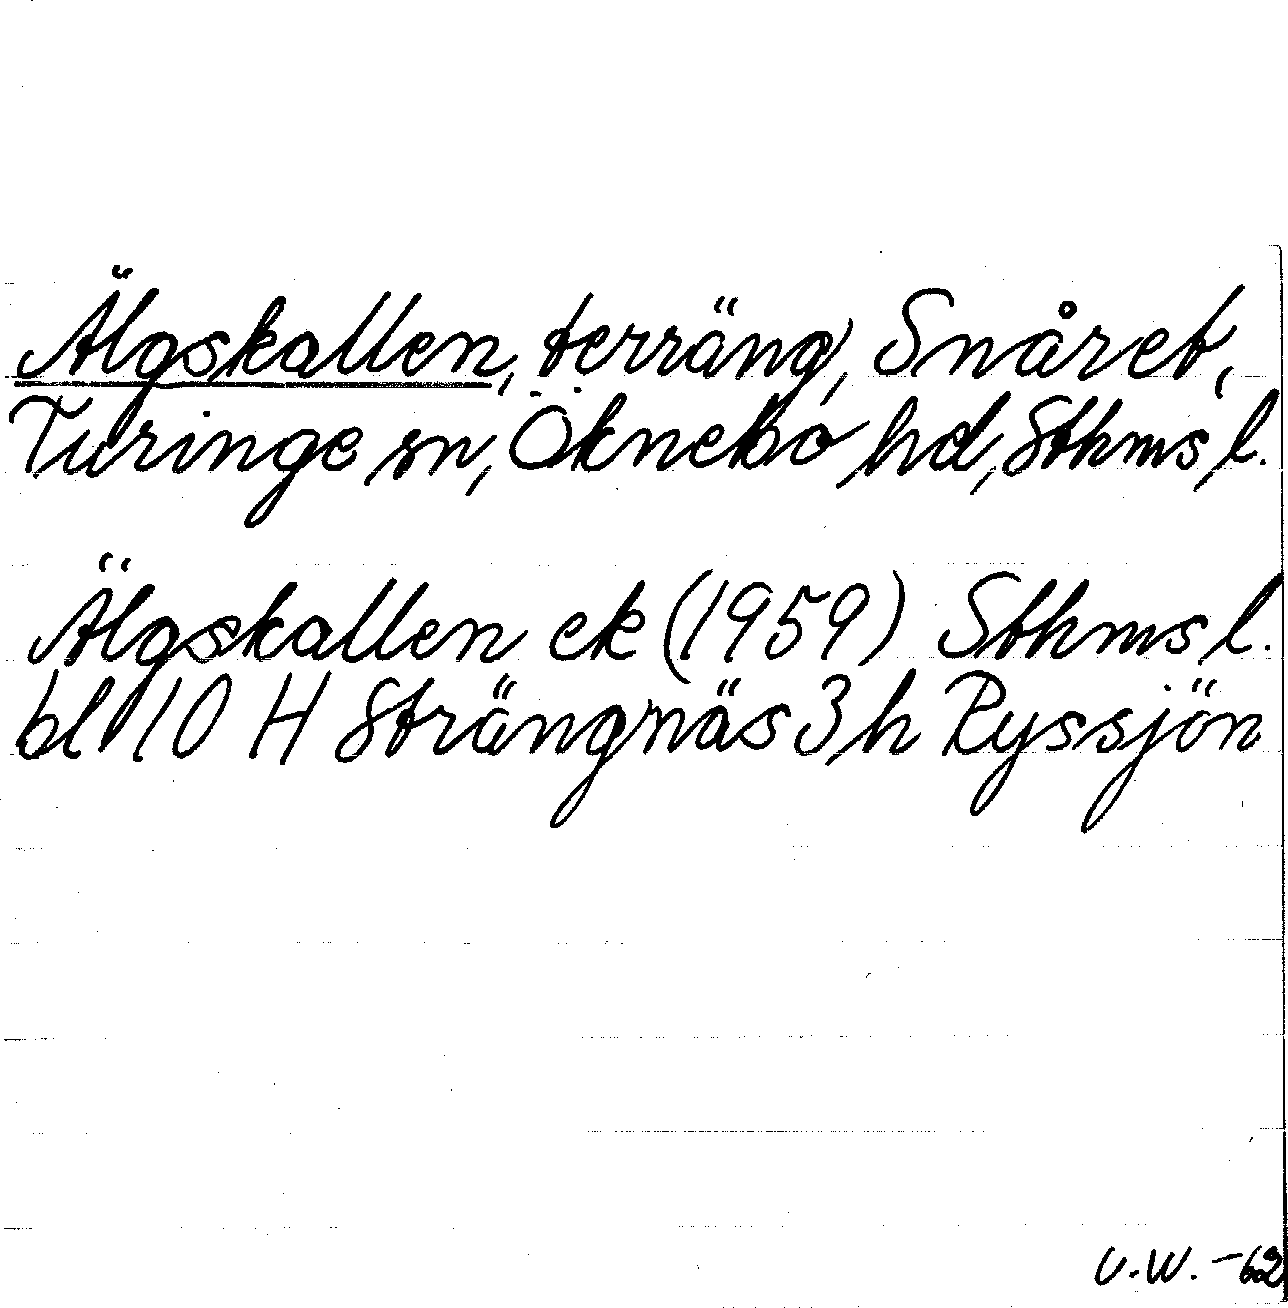 Älgskallen, terräng, Snåret,
Turinge sn, Öknebo hd, Sthms l.
Älgskallen ek (1959) Sthms l.
bl 10 H Strängnäs 3 h Ryssjön
U.W. -62